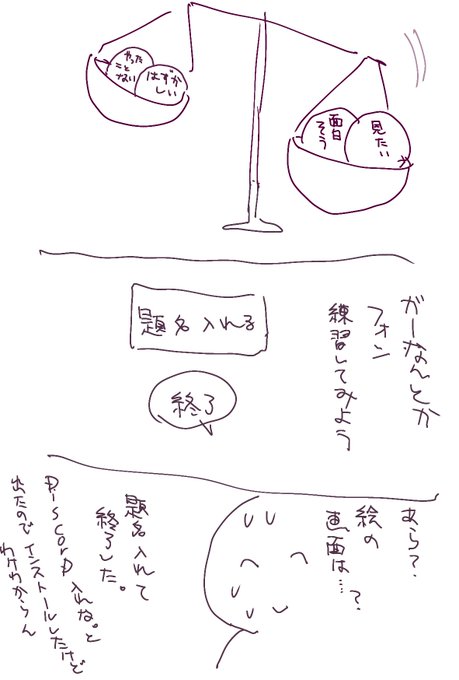 やった
ことない
はずか
しい
面白
そう
見たい
ガーなんとか
フォン
練習してみよう
題名入れる
終了
あら？
絵の
画面は…？
題名入れて
終了した。
Discord入れな。と
出たのでインストールしたけど
わけわからん